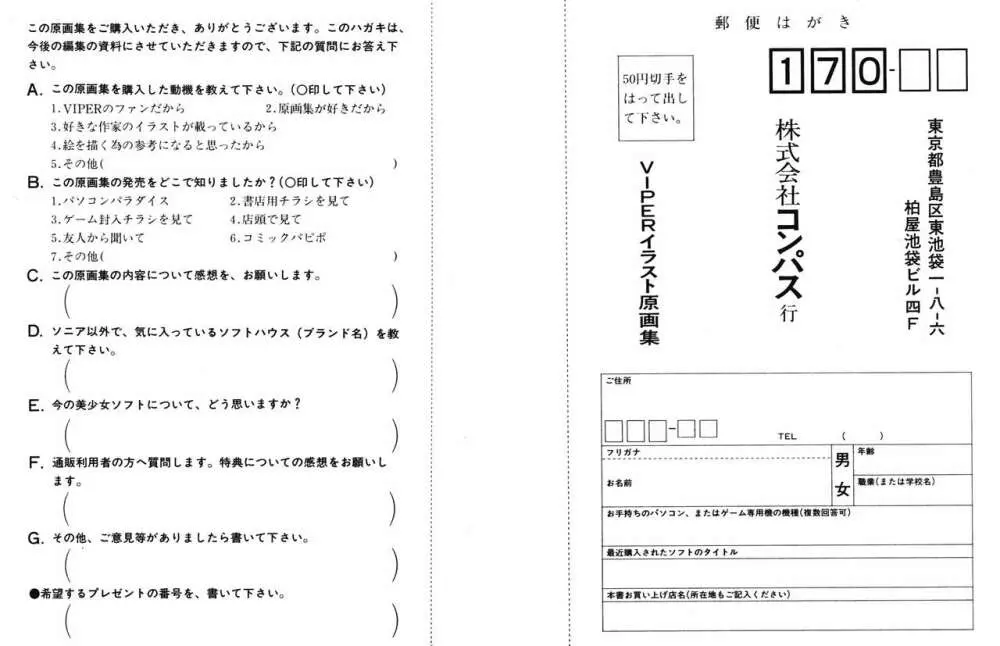 この原画集をご購入いただき、ありがとうございます。このハガキは、
今後の編集の資料にさせていただきますので、下記の質問にお答え下
さい。
A. この原画集を購入した動機を教えて下さい。(〇印して下さい)
1.VIPERのファンだから 2.原画集が好きだから
3.好きな作家のイラストが載っているから
4.絵を描く為の参考になると思ったから
5.その他( )
B. この原画集の発売をどこで知りましたか?(〇印して下さい)
1.パソコンパラダイス 2.書店用チラシを見て
3.ゲーム封入チラシを見て 4.店頭で見て
5.友人から聞いて 6.コミックパピポ
7.その他( )
C. この原画集の内容について感想を、お願いします。
( )
D. ソニア以外で、気に入っているソフトハウス(ブランド名)を教
えて下さい。
( )
E. 今の美少女ソフトについて、どう思いますか?
( )
F. 通販利用者の方へ質問します。特典についての感想をお願いし
ます。
( )
G. その他、ご意見等がありましたら書いて下さい。
( )
●希望するプレゼントの番号を、書いて下さい。
( )
郵便はがき
170-
50円切手を
はって出し
て下さい。
東京都豊島区東池袋一-八-六
柏屋池袋ビル四F
株式会社コンパス行
VIPERイラスト原画集
ご住所
-
TEL ( )
フリガナ
お名前
男
女
年齢
職業(または学校名)
お手持ちのパソコン、またはゲーム専用機の機種(複数回答可)
最近購入されたソフトのタイトル
本書お買い上げ店名(所在地もご記入ください)